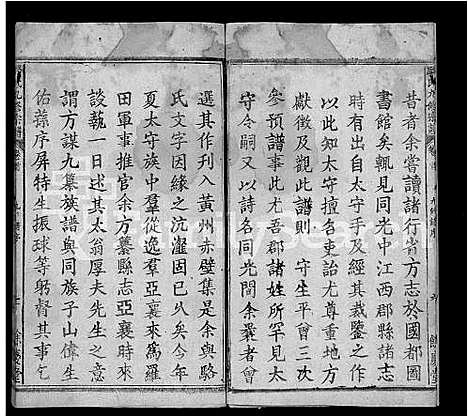 昔者余嘗讀諸行省方志於國都圖
書館矣輒見同光中江西郡縣諸志
時有出自太守手及經其裁鑒之作
以此知太守擅名吏治尤尊重地方
獻徵及觀此譜則 守生平曾三次
參預譜事尤吾郡諸姓所罕見太
守令嗣又以詩名同光間余叢者曾
選其作刊入黃州赤壁集余與駱
氏文字因緣之沆瀣固已久矣今年
夏太守族中羣從逸羣亞襄來爲羅
田軍事推官余方纂縣志亞襄時以
談蓺一日述其太翁厚夫先生之意
謂方謀九纂族譜與同族子山偉生
佑蓀序屏特生振球等躬督其事乞